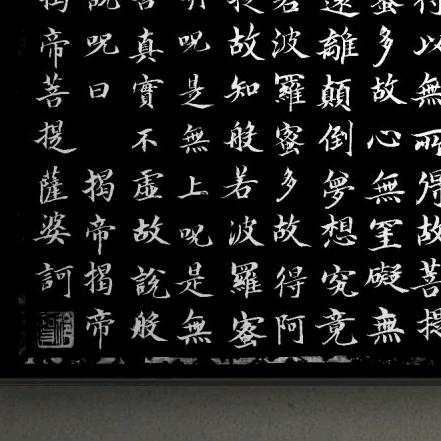 得以無所得故菩提
蜜多故心無罣礙無
遠離顛倒夢想究竟
若波羅蜜多故得阿
提故知般若波羅蜜
明呪是無上呪是無
苦真實不虛故說般
說呪曰 揭帝揭帝
揭帝菩提薩婆訶